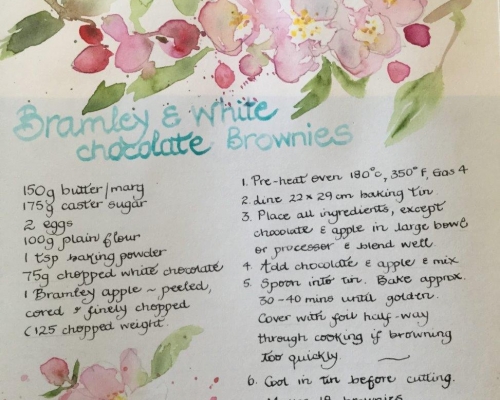 Bramley & White
chocolate Brownies
150g butter/marg
175g caster sugar
2 eggs
100g plain flour
1 tsp baking powder
75g chopped white chocolate
1 Bramley apple ~ peeled,
cored & finely chopped
(125 chopped weight.
1. Pre-heat oven 180°c, 350°F, Gas 4
2. Line 22 x 29 cm baking tin.
3. Place all ingredients, except
chocolate & apple in large bowl
or processor & blend well.
4. Add chocolate & apple & mix
5. Spoon into tin. Bake approx.
30-40 mins until golden.
Cover with foil half-way
through cooking if browning
too quickly.
6. Cool in tin before cutting.
Makes 18 brownies